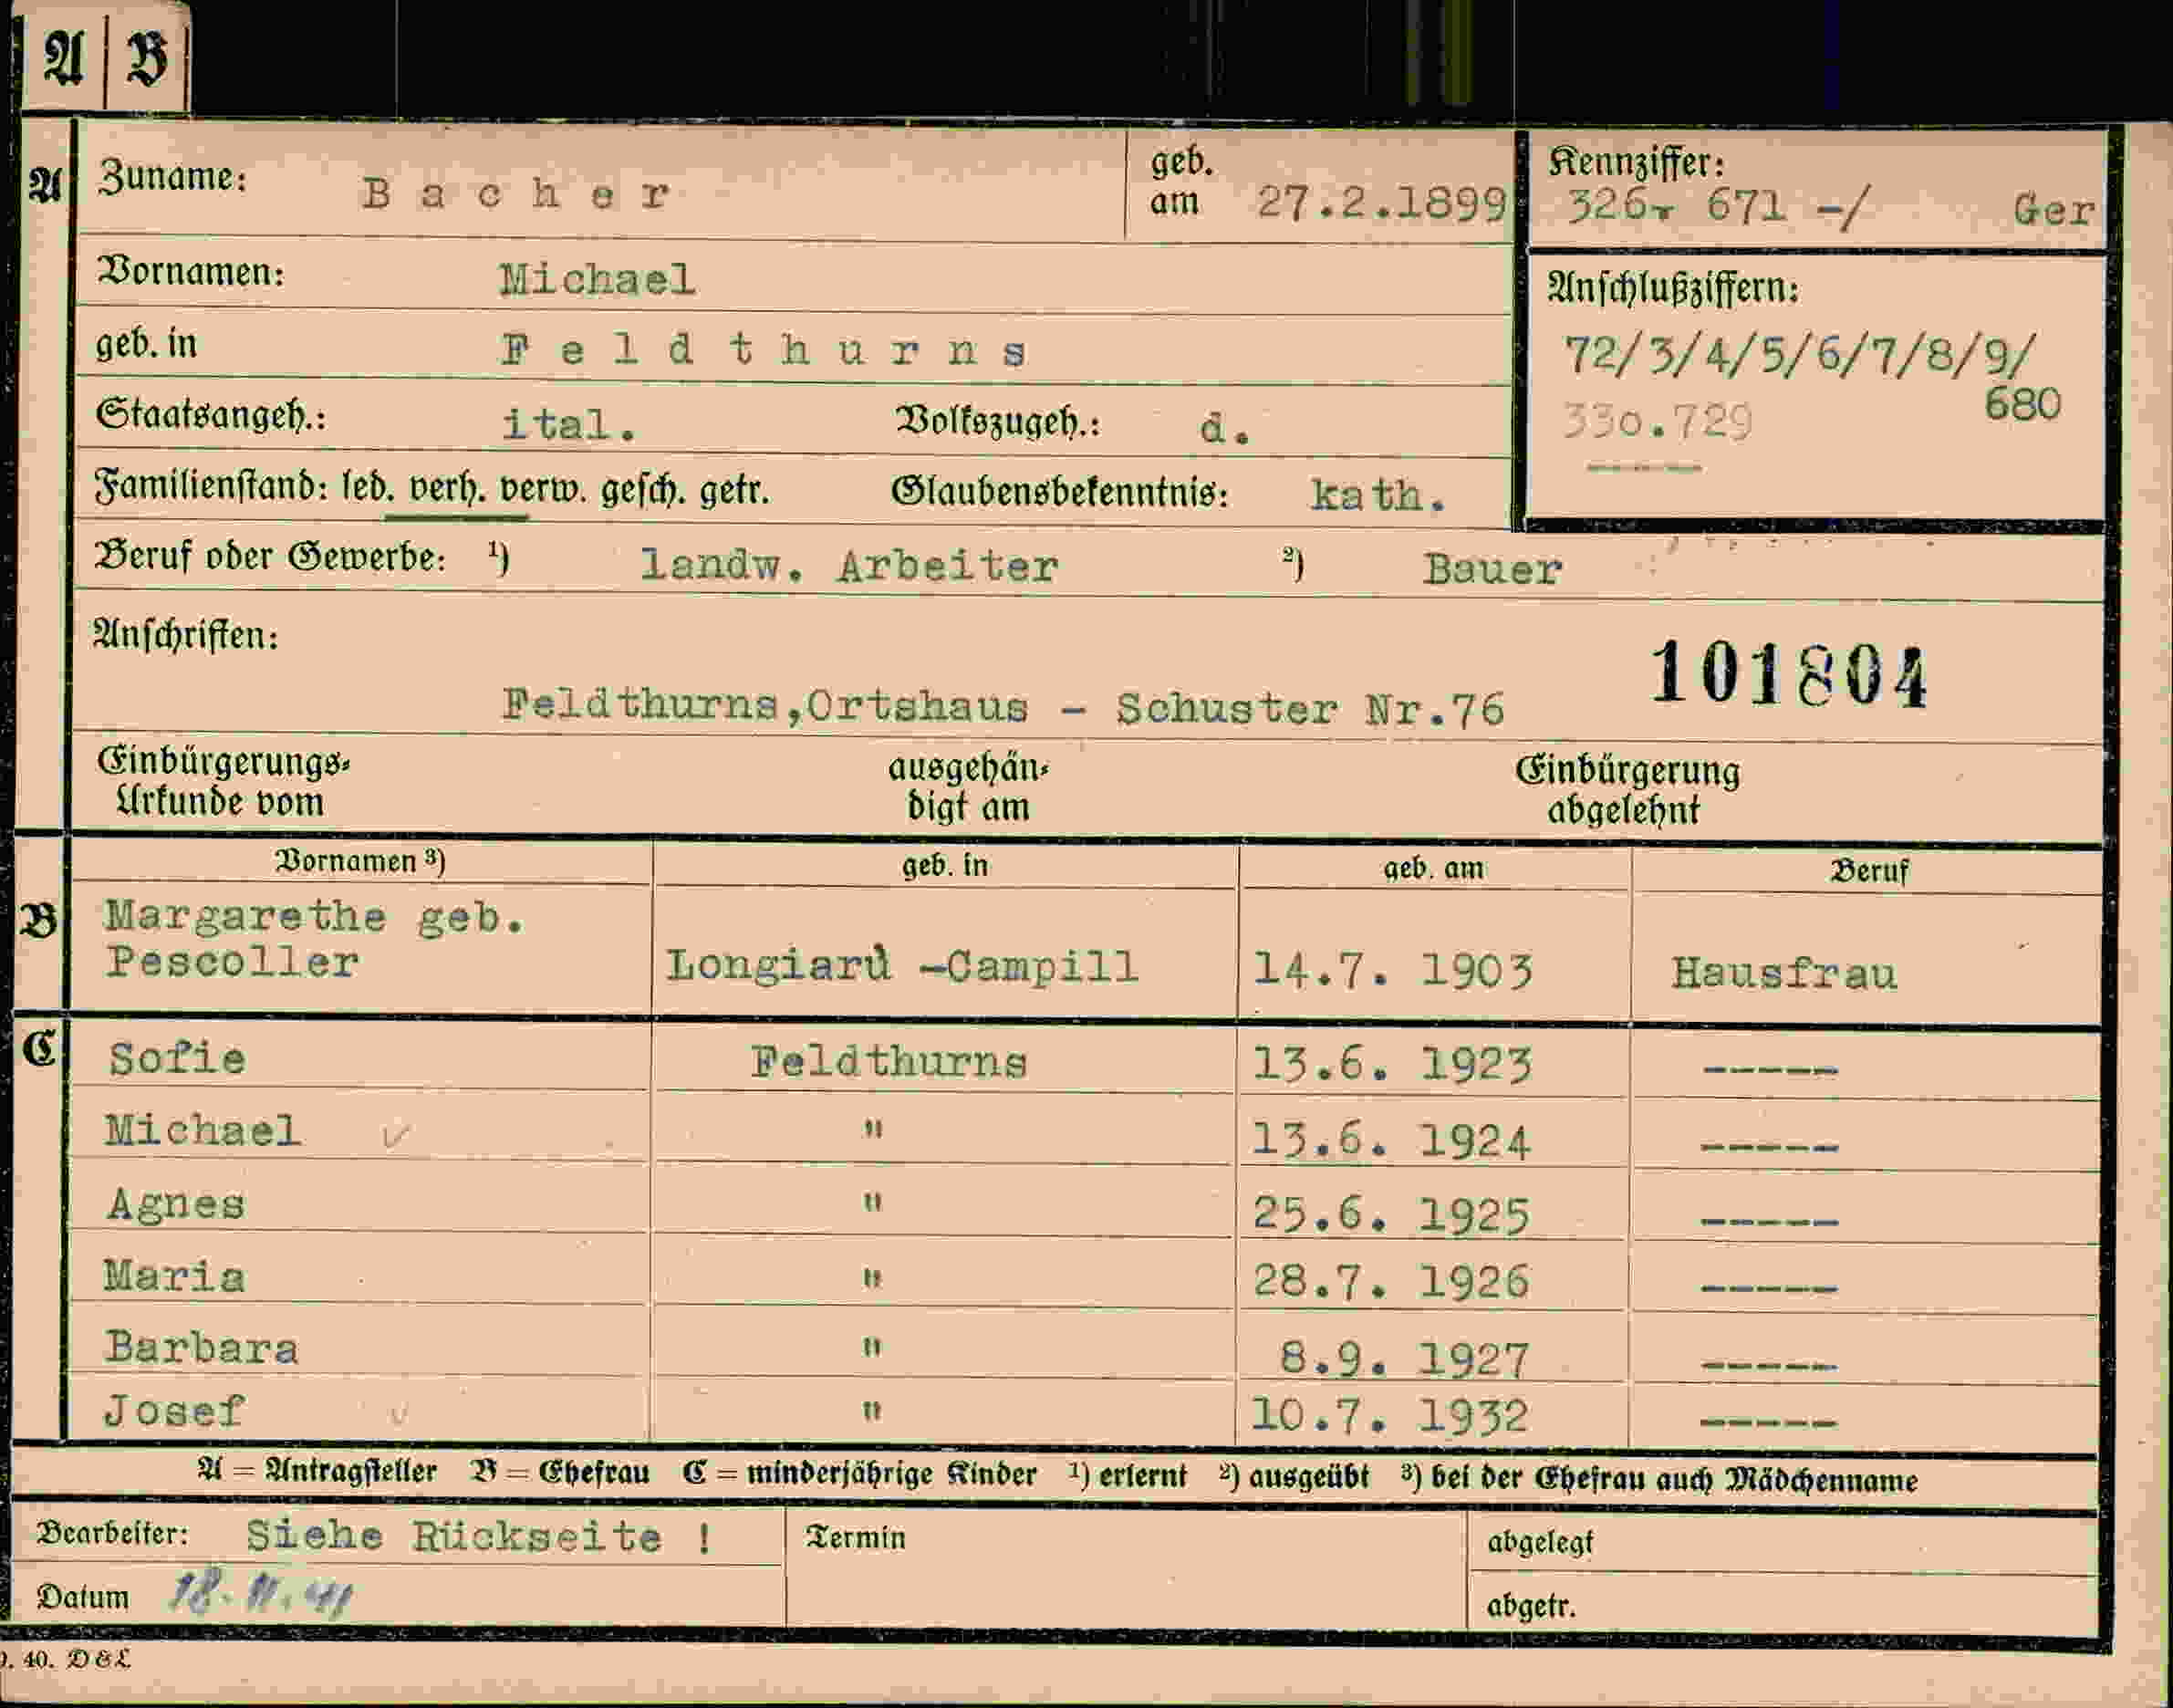 A B
A Zuname: Bacher geb. am 27.2.1899 Kennziffer: 326- 671 -/ Ger
Vornamen: Michael
Anschlußziffern:
geb. in Feldthurns
72/3/4/5/6/7/8/9/
680
Staatsangeh.: ital. Volkszugeh.: d.
330.729
-----
Familienstand: led. verh. verw. gesch. getr. Glaubensbekenntnis: kath.
Beruf oder Gewerbe: ¹) landw. Arbeiter ²) Bauer
Anschriften:
101804
Feldthurns,Ortshaus - Schuster Nr.76
Einbürgerungs- ausgehän- Einbürgerung
Urkunde vom digt am abgelehnt
Vornamen ³) geb. in geb. am Beruf
B Margarethe geb.
Pescoller Longiarù -Campill 14.7. 1903 Hausfrau
C Sofie Feldthurns 13.6. 1923 -----
Michael " 13.6. 1924 -----
Agnes " 25.6. 1925 -----
Maria " 28.7. 1926 -----
Barbara " 8.9. 1927 -----
Josef " 10.7. 1932 -----
A = Antragsteller B = Ehefrau C = minderjährige Kinder ¹) erlernt ²) ausgeübt ³) bei der Ehefrau auch Mädchenname
Bearbeiter: Siehe Rückseite ! Termin abgelegt
Datum 18.11.41 abgetr.
40. D & L